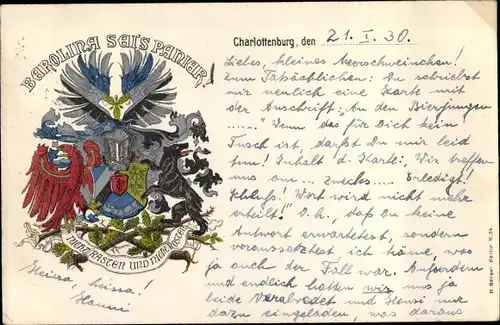 BEROLINA SEI'S PANIER!
Charlottenburg, den 21. I. 30.
Liebes, kleines Meerschweinchen!
Zum Tatsächlichen: Du schriebst
mir neulich eine Karte mit
der Anschrift: "An den Bierjungen
......" Wenn das für Dich kein
Tusch ist, darfst Du mir leid
tun! Inhalt d. Karte: Wir treffen
uns am ... zwecks .... Erledigt!
Schluß! Wort wird nicht mehr
erteilt!" D. h., daß Du keine
Antwort erwartetest, sondern
voraussetztest ich käme, was
ja auch der Fall war. Außerdem
und endlich hatten wir uns ja
beide verabredet und Hansi nur
dazu eingeladen, was daraus
NICHT RASTEN UND NICHT ROSTEN
Heissa, heissa!
Hanni
H. Berger Berlin N.24.